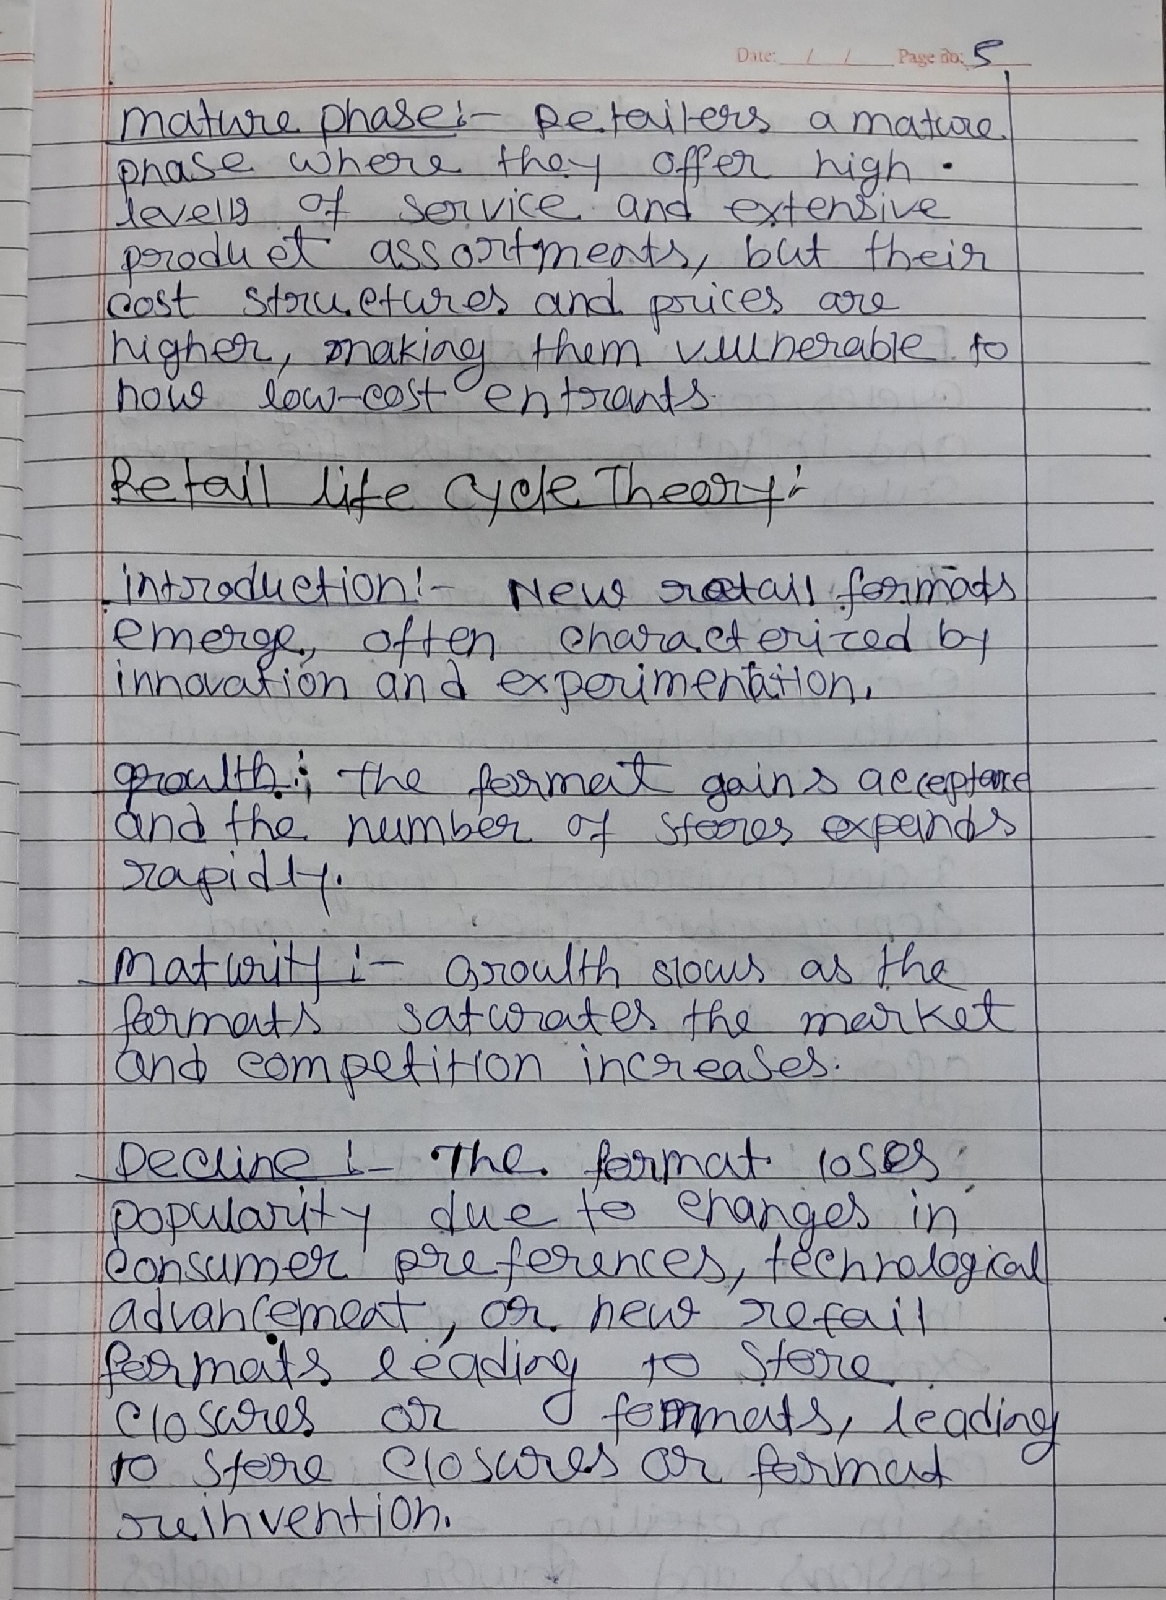 Date: / / Page no: 5
mature phase:- Retailers a mature
phase where they offer high
levels of service and extensive
product assortments, but their
cost structures and prices are
higher, making them vulnerable to
now low-cost entrants.
Retail life cycle Theory:-
introduction:- New retail formats
emerge, often characterized by
innovation and experimentation.
growth:- the format gains acceptance
and the number of stores expands
rapidly.
maturity:- Growth slows as the
formats saturates the market
and competition increases.
Decline:- The format loses
popularity due to changes in
consumer preferences, technological
advancement, or new retail
formats leading to store
closures or formats, leading
to store closures or format
reinvention.